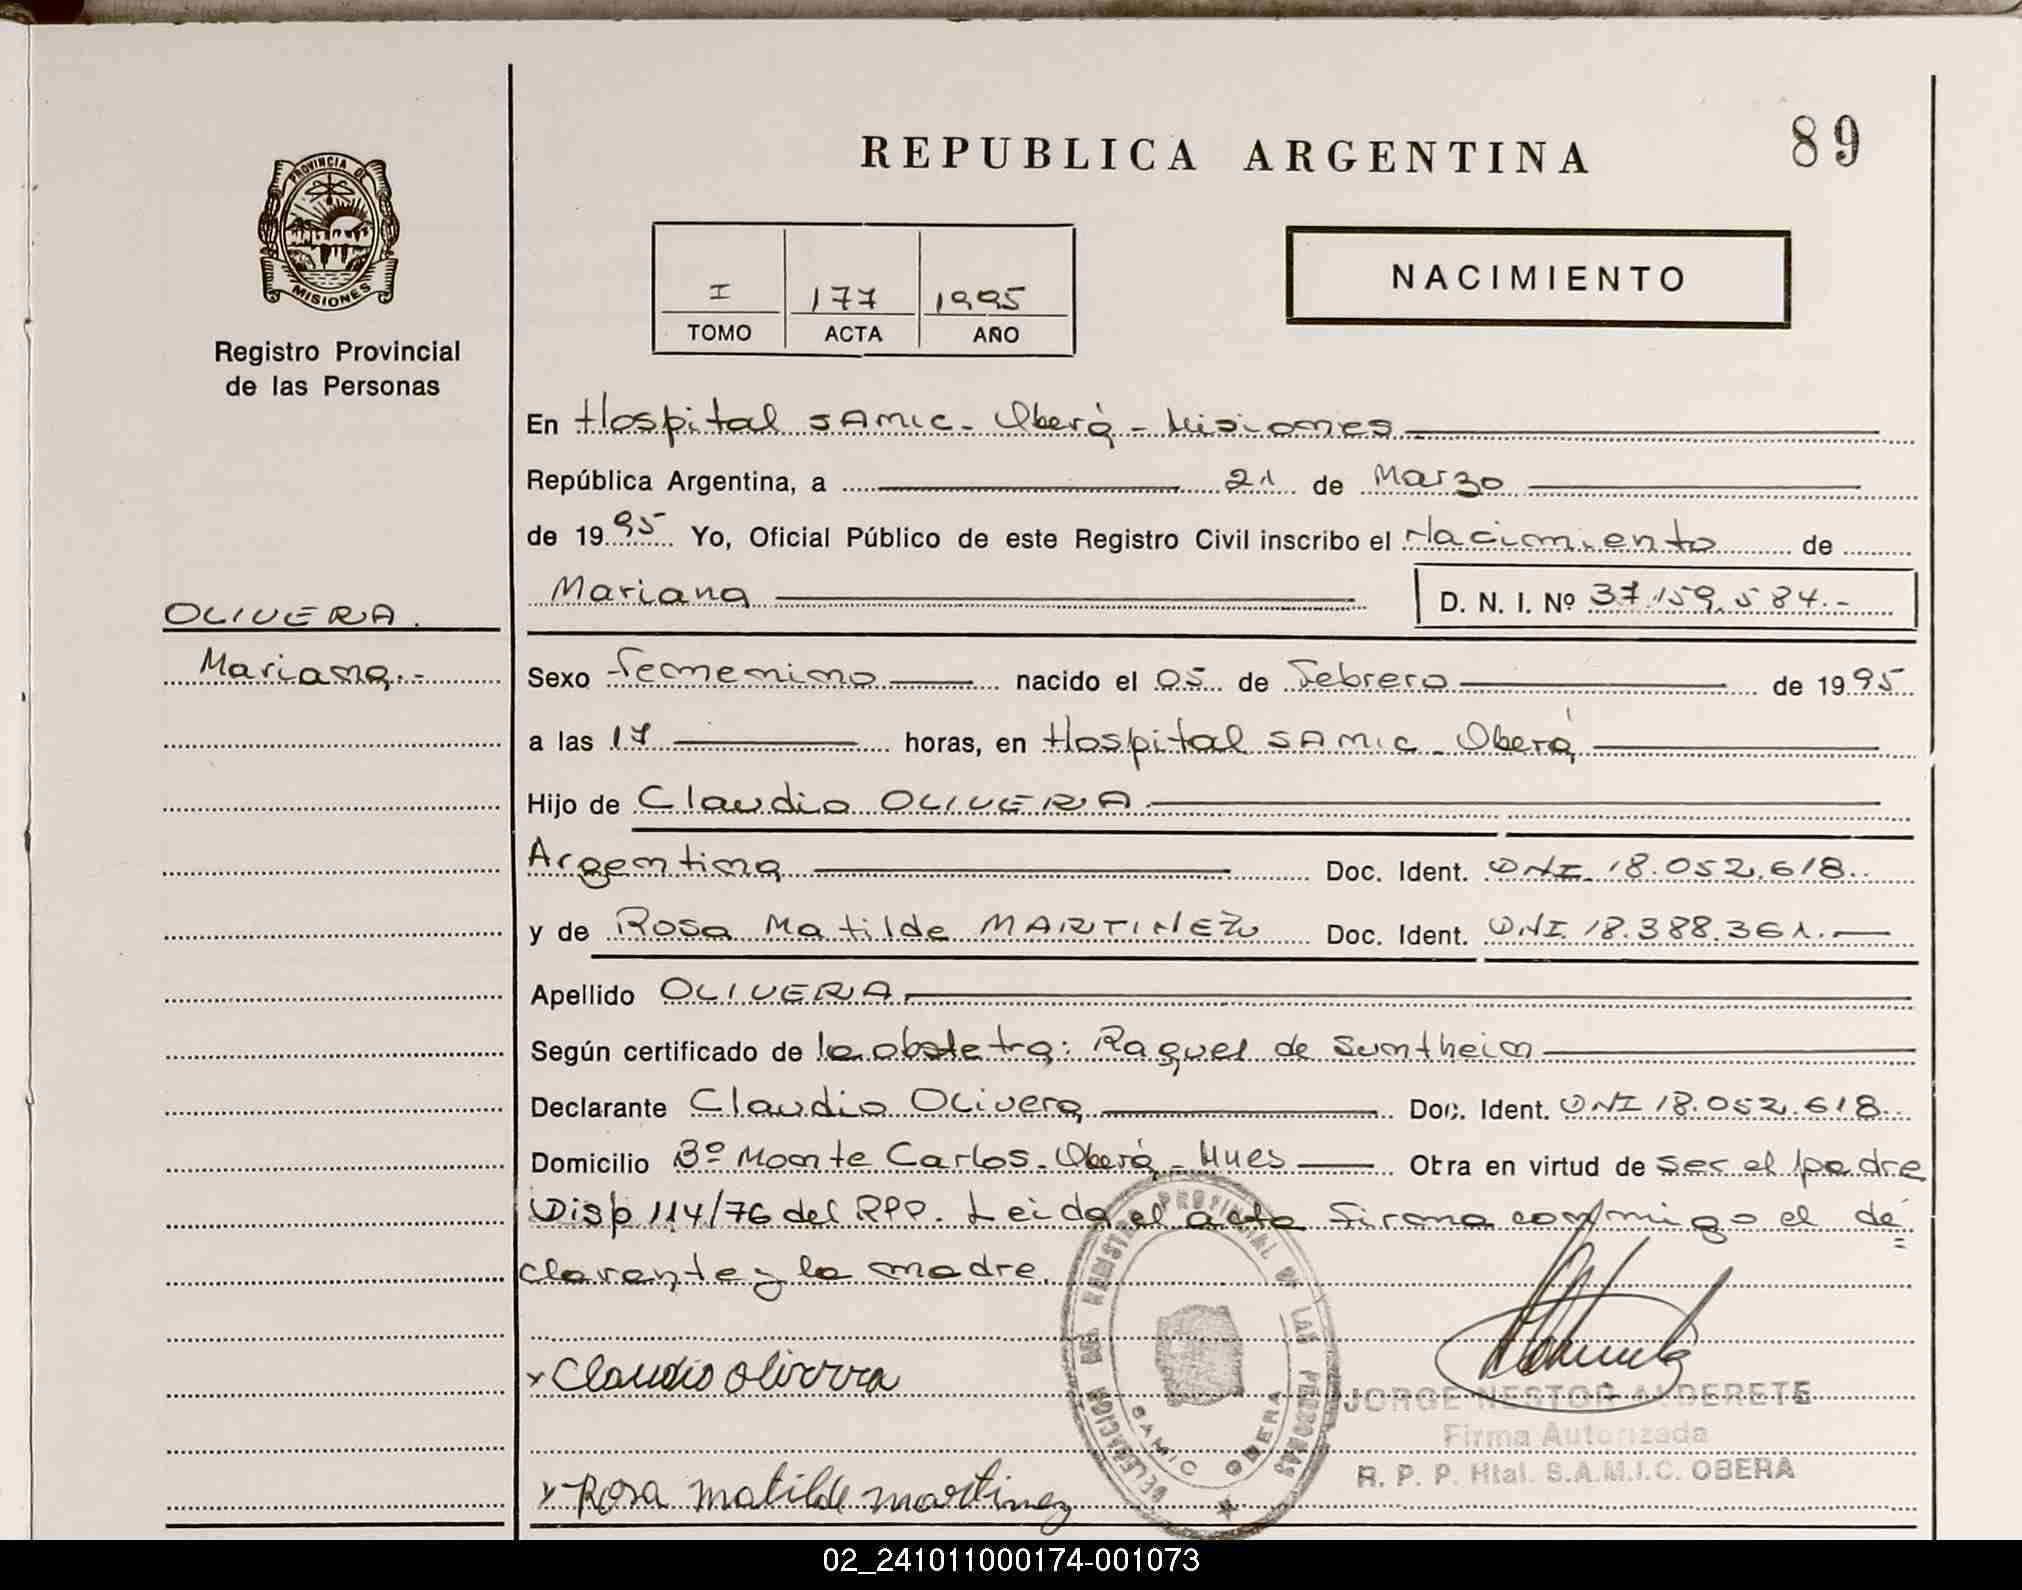 REPUBLICA ARGENTINA
89
PROVINCIA DE
MISIONES
Registro Provincial
de las Personas
I 177 1995
TOMO ACTA AÑO
NACIMIENTO
En Hospital SAMIC - Oberá - Misiones
República Argentina, a 21 de Marzo
de 1995 Yo, Oficial Público de este Registro Civil inscribo el Nacimiento de
Mariana D. N. I. Nº 37.159.584.-
OLIVERA.
Mariana.-
Sexo Femenino nacido el 05 de Febrero de 1995
a las 17 horas, en Hospital SAMIC - Oberá
Hijo de Claudio OLIVERA
Argentina Doc. Ident. DNI 18.052.618.
y de Rosa Matilde MARTINEZ Doc. Ident. DNI 18.388.361.-
Apellido OLIVERA
Según certificado de la obstetra: Raquel de Suntheim
Declarante Claudio Olivera Doc. Ident. DNI 18.052.618.
Domicilio Bº Monte Carlos - Oberá - Mnes Obra en virtud de ser el padre
Disp 114/76 del RPP. Leida el acta firma conmigo el de
clarante y la madre.
x Claudio Olivera
x Rosa Matilde Martinez
DELEGACION DEL REGISTRO PROVINCIAL DE LAS PERSONAS
SAMIC OBERA
JORGE NESTOR ALDERETE
Firma Autorizada
R. P. P. Htal. S.A.M.I.C. OBERA
02_241011000174-001073